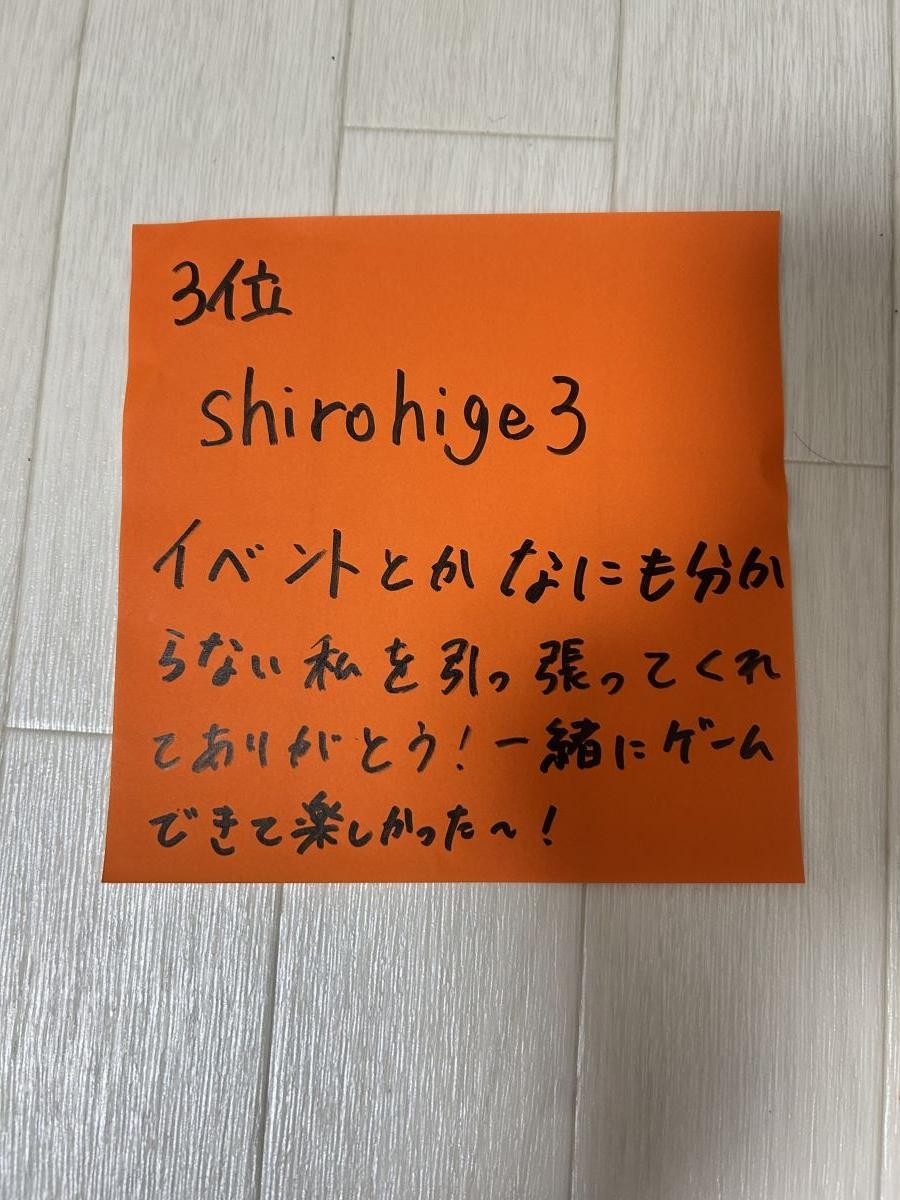 3位
shirohige3
イベントとかなにも分か
らない私を引っ張ってくれ
てありがとう！一緒にゲーム
できて楽しかった～！